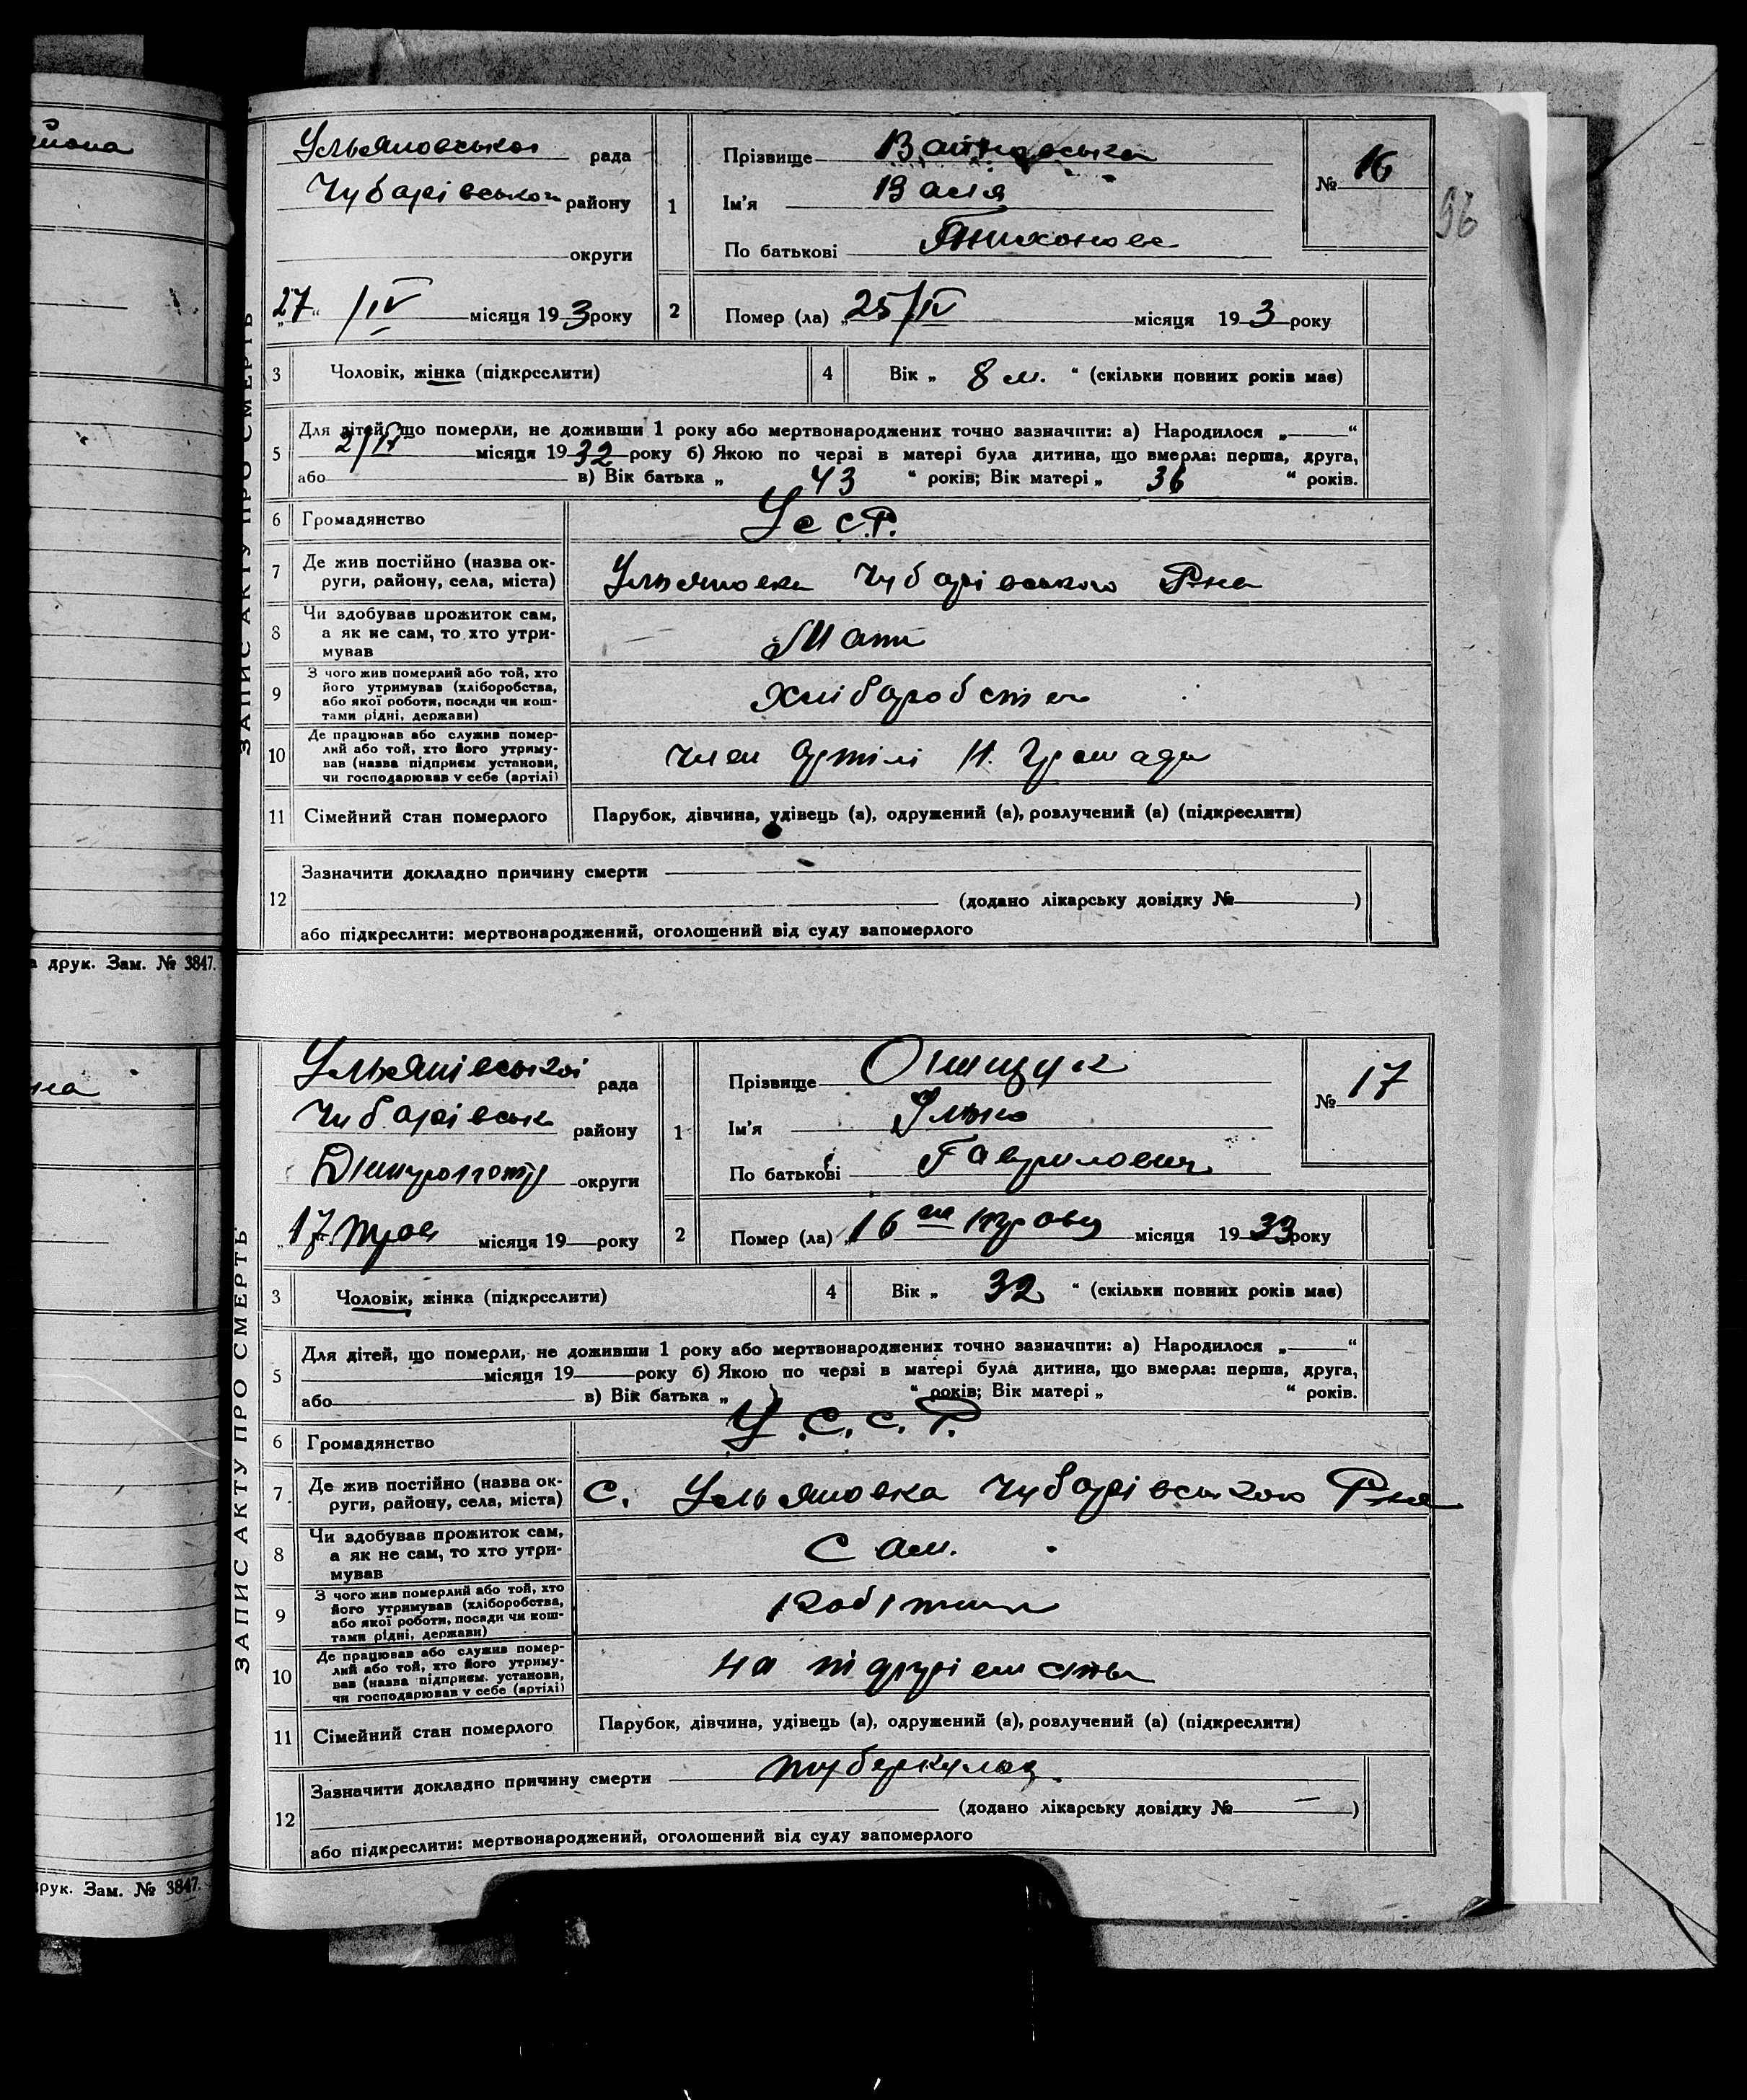 96
ЗАПИС АКТУ ПРО СМЕРТЬ
Ульяновської рада
Чубарівської району
округи
„27“ /IV місяця 193 року
1 Прізвище
Ім'я Валя
По батькові Тихонова
№ 16
2 Помер (ла) „25/IV місяця 193 року
3 Чоловік, жінка (підкреслити)
4 Вік „ 8 м. “ (скільки повних років має)
5 Для дітей, що померли, не доживши 1 року або мертвонароджених точно зазначити: а) Народилося „ “
місяця 1932 року б) Якою по черзі в матері була дитина, що вмерла: перша, друга,
або в) Вік батька „ 43 “ років; Вік матері „ 36 “ років.
6 Громадянство УССР.
7 Де жив постійно (назва ок-
руги, району, села, міста) Ульяновка Чубарівського Р-на
8 Чи здобував прожиток сам,
а як не сам, то хто утри-
мував Мати
9 З чого жив померлий або той, хто
його утримував (хліборобства,
або якої роботи, посади чи кош-
тами рідні, держави) Хліборобства
10 Де працював або служив помер-
лий або той, хто його утриму-
вав (назва підприєм установи,
чи господарював у себе (артілі) член артілі Н. Громада
11 Сімейний стан померлого Парубок, дівчина, удівець (а), одружений (а), розлучений (а) (підкреслити)
12 Зазначити докладно причину смерти
(додано лікарську довідку № )
або підкреслити: мертвонароджений, оголошений від суду запомерлого
друк. Зам. № 3847.
ЗАПИС АКТУ ПРО СМЕРТЬ
Ульянівської рада
Чубарівськ району
округи
„17 трав місяця 19 року
1 Прізвище Онищук
Ім'я Улько
По батькові Гаврилович
№ 17
2 Помер (ла) „16 го травня місяця 1933 року
3 Чоловік, жінка (підкреслити)
4 Вік „ 32 “ (скільки повних років має)
5 Для дітей, що померли, не доживши 1 року або мертвонароджених точно зазначити: а) Народилося „ “
місяця 19 року б) Якою по черзі в матері була дитина, що вмерла: перша, друга,
або в) Вік батька „ “ років; Вік матері „ “ років.
6 Громадянство У.С.С.Р.
7 Де жив постійно (назва ок-
руги, району, села, міста) С. Ульяновка Чубарівського Р-на
8 Чи здобував прожиток сам,
а як не сам, то хто утри-
мував Сам.
9 З чого жив померлий або той, хто
його утримував (хліборобства,
або якої роботи, посади чи кош-
тами рідні, держави) Робітник
10 Де працював або служив помер-
лий або той, хто його утриму-
вав (назва підприєм. установи,
чи господарював у себе (артілі) На підприємства
11 Сімейний стан померлого Парубок, дівчина, удівець (а), одружений (а), розлучений (а) (підкреслити)
12 Зазначити докладно причину смерти туберкульоз.
(додано лікарську довідку № — )
або підкреслити: мертвонароджений, оголошений від суду запомерлого
друк. Зам. № 3847.